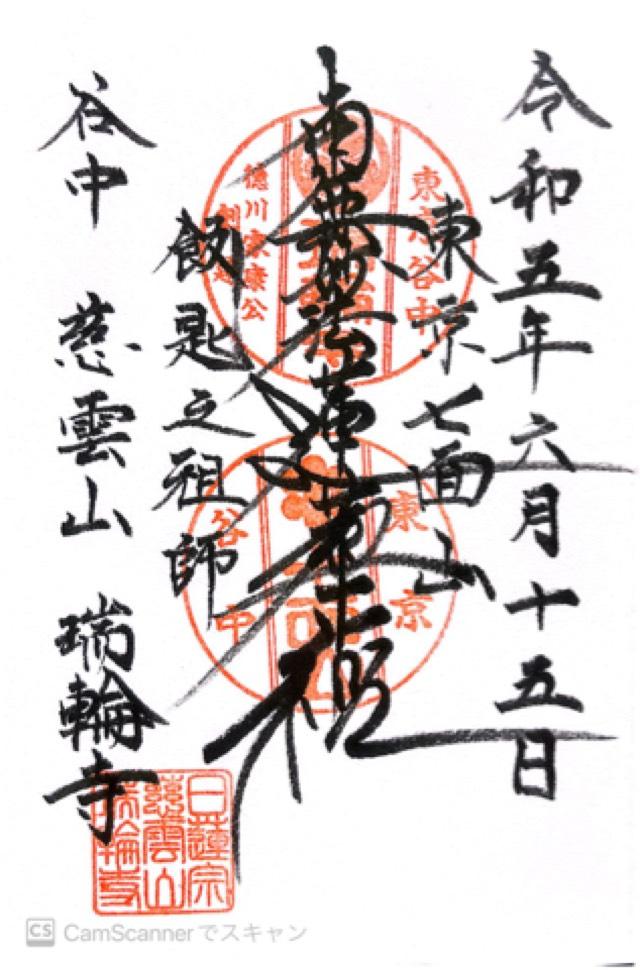 令和五年六月十五日
東京七面山
南無妙法蓮華経
飯匙之祖師
谷中 慈雲山 瑞輪寺
東京谷中
徳川家康公
東京
谷中
日蓮宗
慈雲山
瑞輪寺
CS CamScannerでスキャン